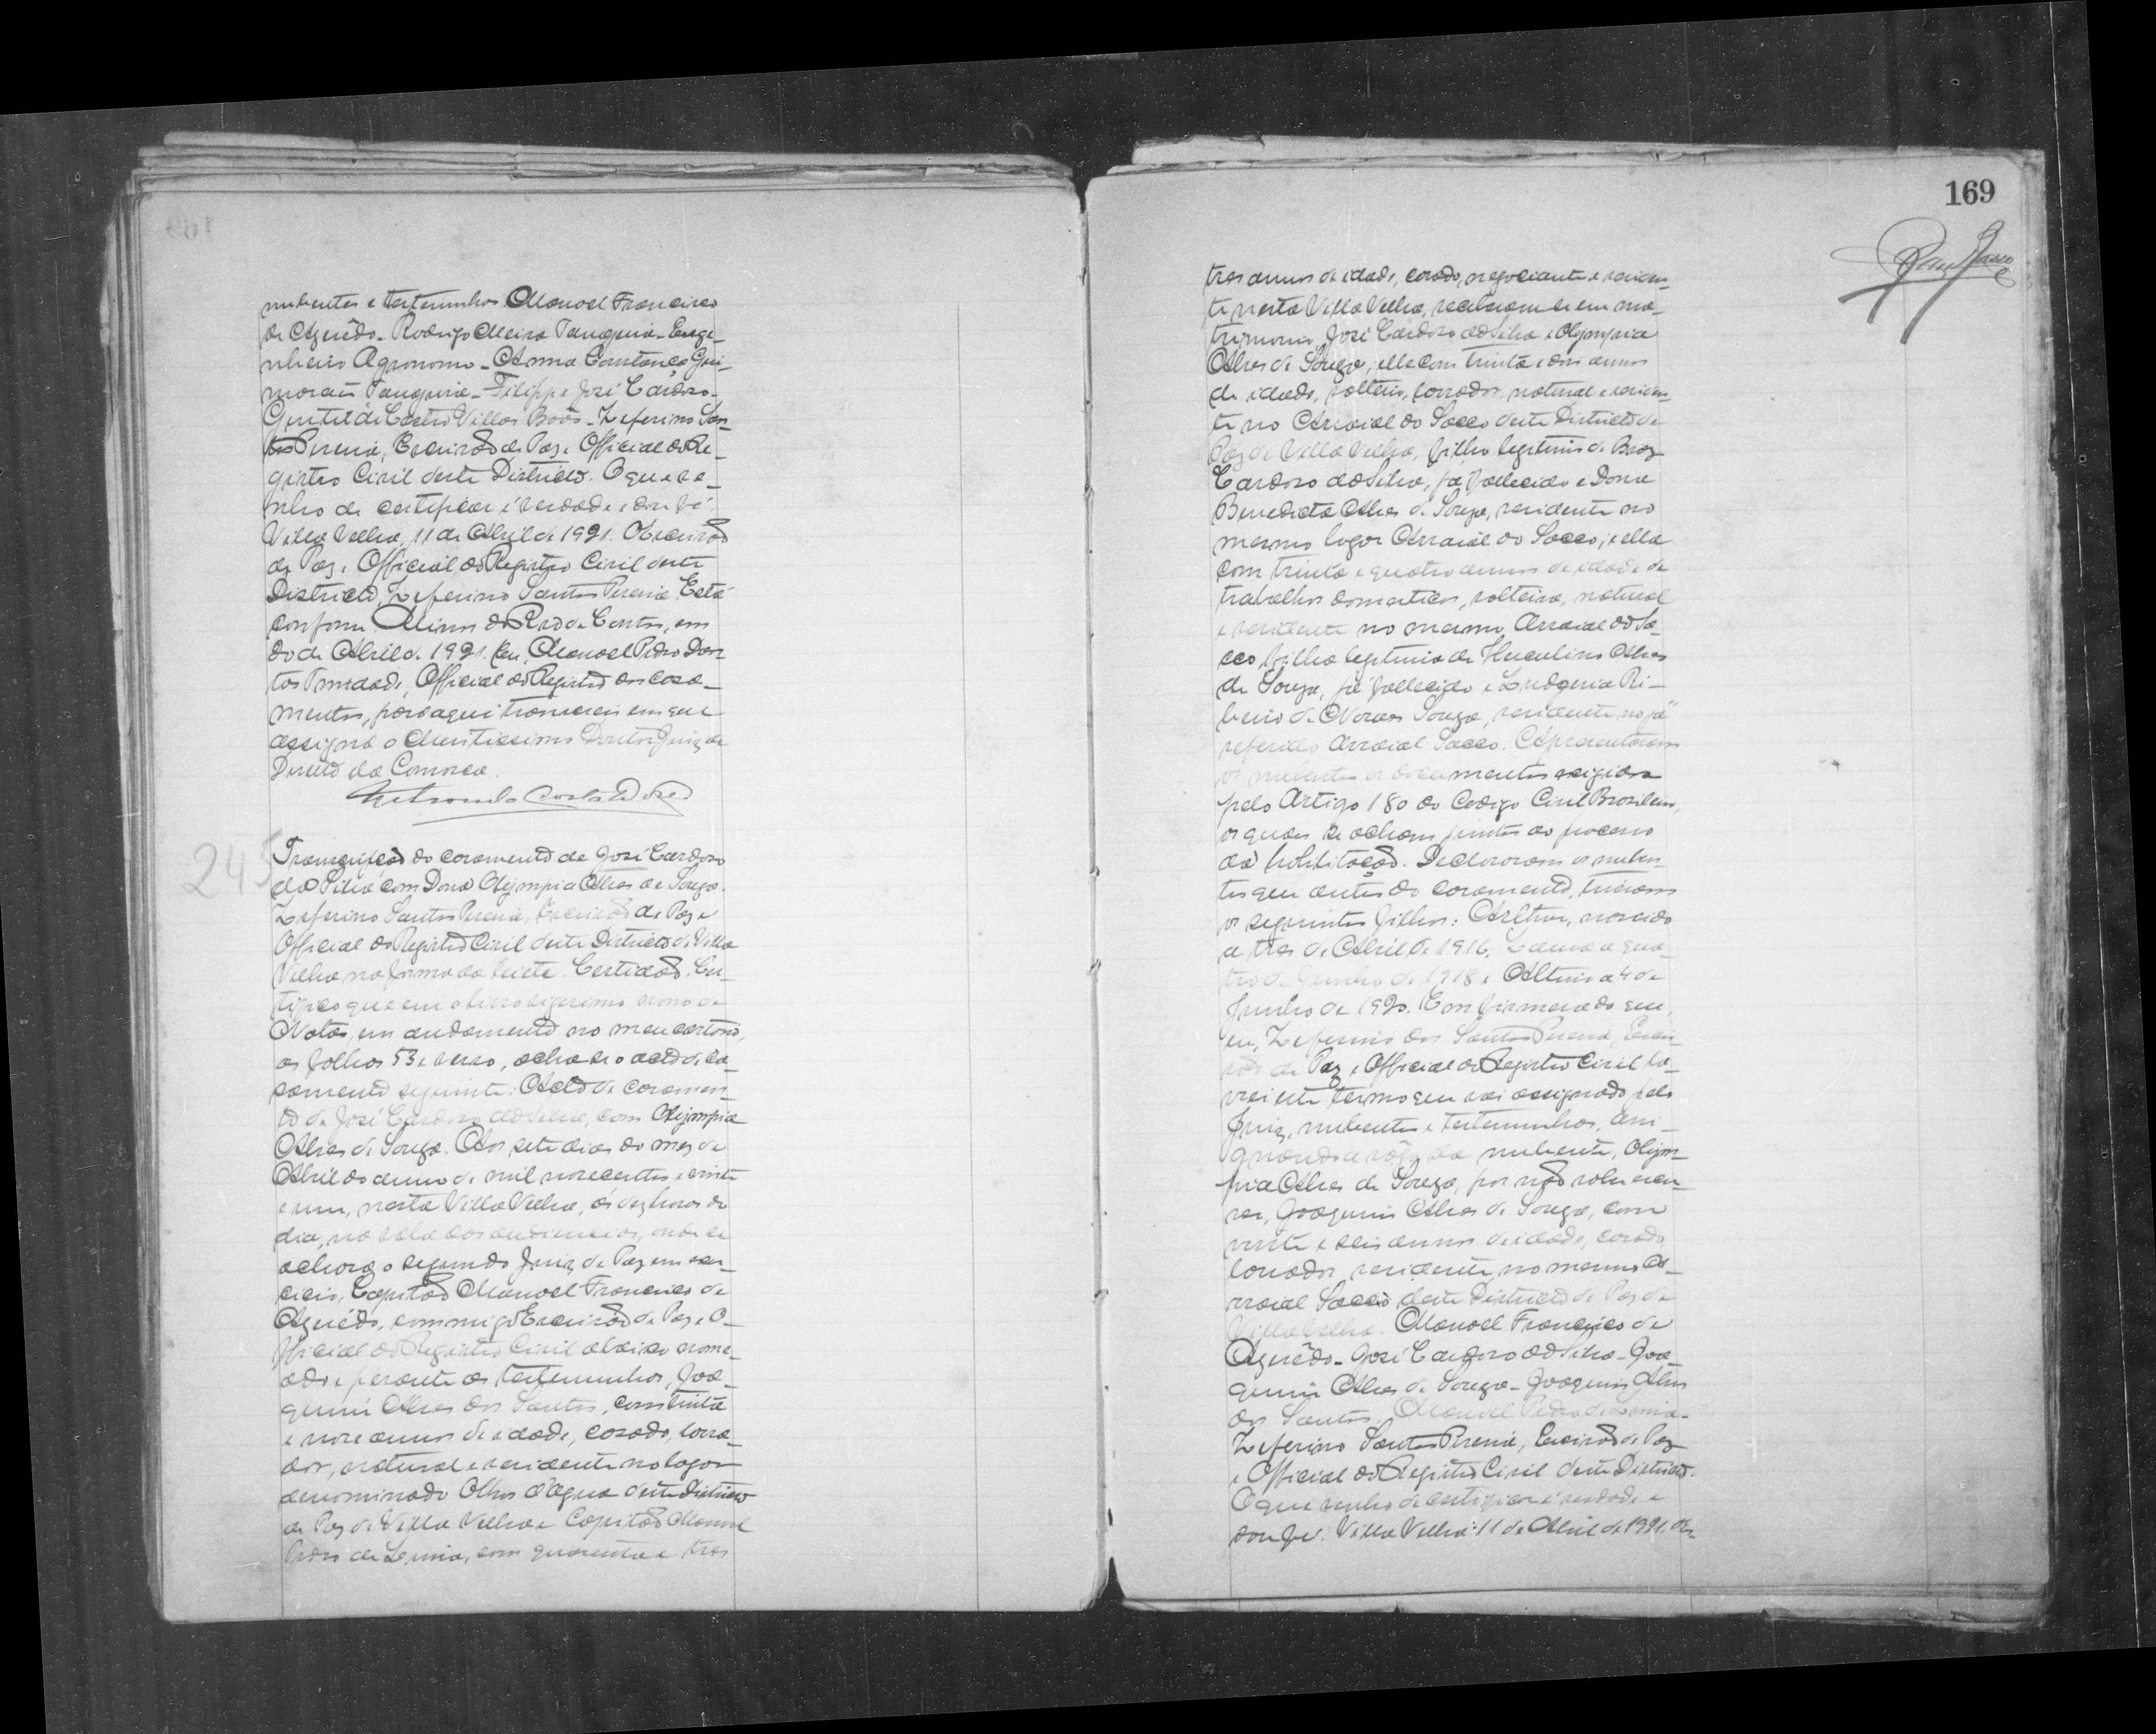 nubentes e testemunhas Manoel Francisco
de Azevêdo - Rodrigo Meira Tanquria - Enge-
nheiro Agronomo - Anna Constança Gui-
marães Tanquria - Filippe José Cardoso -
Gentil de Castro Villas Boas - Zeferino San-
tos Pereira, Escrivão de Paz e Official do Re-
gistro Civil deste Districto. O que ve-
nho de certificar é verdade e dou fé.
Villa Velha, 11 de Abril de 1921. O Escrivão
de Paz e Official do Registro Civil deste
Districto, Zeferino Santos Pereira. Está
conforme. Minas do Rio de Contas, em
de Abril de 1921. Eu, Manoel Pedro Dan-
tas Trindade, Official do Registro dos casa-
mentos, para aqui transcrevi em que
assigna o Meritissimo Doutor Juiz de
Direito da Comarca.
245
Transcripção do casamento de José Cardoso
da Silva com Dona Olympia Alves de Souza.
Zeferino Santos Pereira, Escrivão de Paz e
Official do Registro Civil deste Districto de Villa
Velha na forma da lei etc. Certidão. Cer-
tifico que em o livro vigesimo nono de
Notas, em andamento no meu cartorio,
as folhas 53 e verso, acha-se o acto de ca-
samento seguinte: Acto de casamen-
to de José Cardoso da Silva, com Olympia
Alves de Souza. Aos sete dias do mez de
Abril do anno de mil novecentos e vinte
e um, nesta Villa Velha, ás dez horas do
dia, na sala das audiencias, onde se
achava o segundo Juiz de Paz em exer-
cicio, Capitão Manoel Francisco de
Azevêdo, commigo Escrivão de Paz e O-
fficial do Registro Civil abaixo nome-
ado e perante as testemunhas, Joa-
quim Alves dos Santos, com trinta
e nove annos de edade, casado, lavra-
dor, natural e residente no logar
denominado Olhos d'Agua deste Districto
de Paz de Villa Velha e Capitão Manoel
Pedro de, com quarenta e tres
169
tres annos de idade, casado, negociante e residen-
te nesta Villa Velha, receberam-se em ma-
trimonio José Cardoso da Silva e Olympia
Alves de Souza; elle com trinta e dois annos
de idade, solteiro, lavrador, natural e residen-
te no Arraial do Sacco deste Districto de
Paz de Villa Velha, filho legitimo de Braz
Cardoso da Silva, já fallecido e Dona
Benedicta Alves de Souza, residente no
mesmo logar Arraial do Sacco; e ella
com trinta e quatro annos de idade de
trabalhos domesticos, solteira, natural
e residente no mesmo Arraial do Sa-
cco, filha legitima de Herculino Alves
de Souza, já fallecido e Ludgeria Ri-
beiro de Novaes Souza, residente no já
referido Arraial Sacco. Apresentaram
os nubentes os documentos exigidos
pelo Artigo 180 do Codigo Civil Brasileiro,
os quaes se acham juntos ao processo
da habilitação. Declararam os nuben-
tes que antes do casamento, tiveram
os seguintes filhos: Arthur, nascido
a tres de Abril de 1916, a qua-
tro de Junho de 1918 e Altino a 4 de
Junho de 1920. Em firmeza do que,
eu, Zeferino dos Santos Pereira, Escri-
vão de Paz e Official do Registro Civil la-
vrei este termo que vai assignado pelo
Juiz, nubentes e testemunhas, assi-
gnando a rôgo da nubente, Olym-
pia Alves de Souza, por não saber escre-
ver, Joaquim Alves de Souza, com
vinte e seis annos de idade, casado
lavrador, residente no mesmo A-
rraial Sacco, deste Districto de Paz de
Villa Velha. Manoel Francisco de
Azevêdo - José Cardoso da Silva - Joa-
quim Alves de Souza - Joaquim Alves
dos Santos. Manoel Pedro de -
Zeferino Santos Pereira, Escrivão de Paz
e Official do Registro Civil deste Districto.
O que venho de certificar é verdade e
dou fé. Villa Velha: 11 de Abril de 1921. O Es-